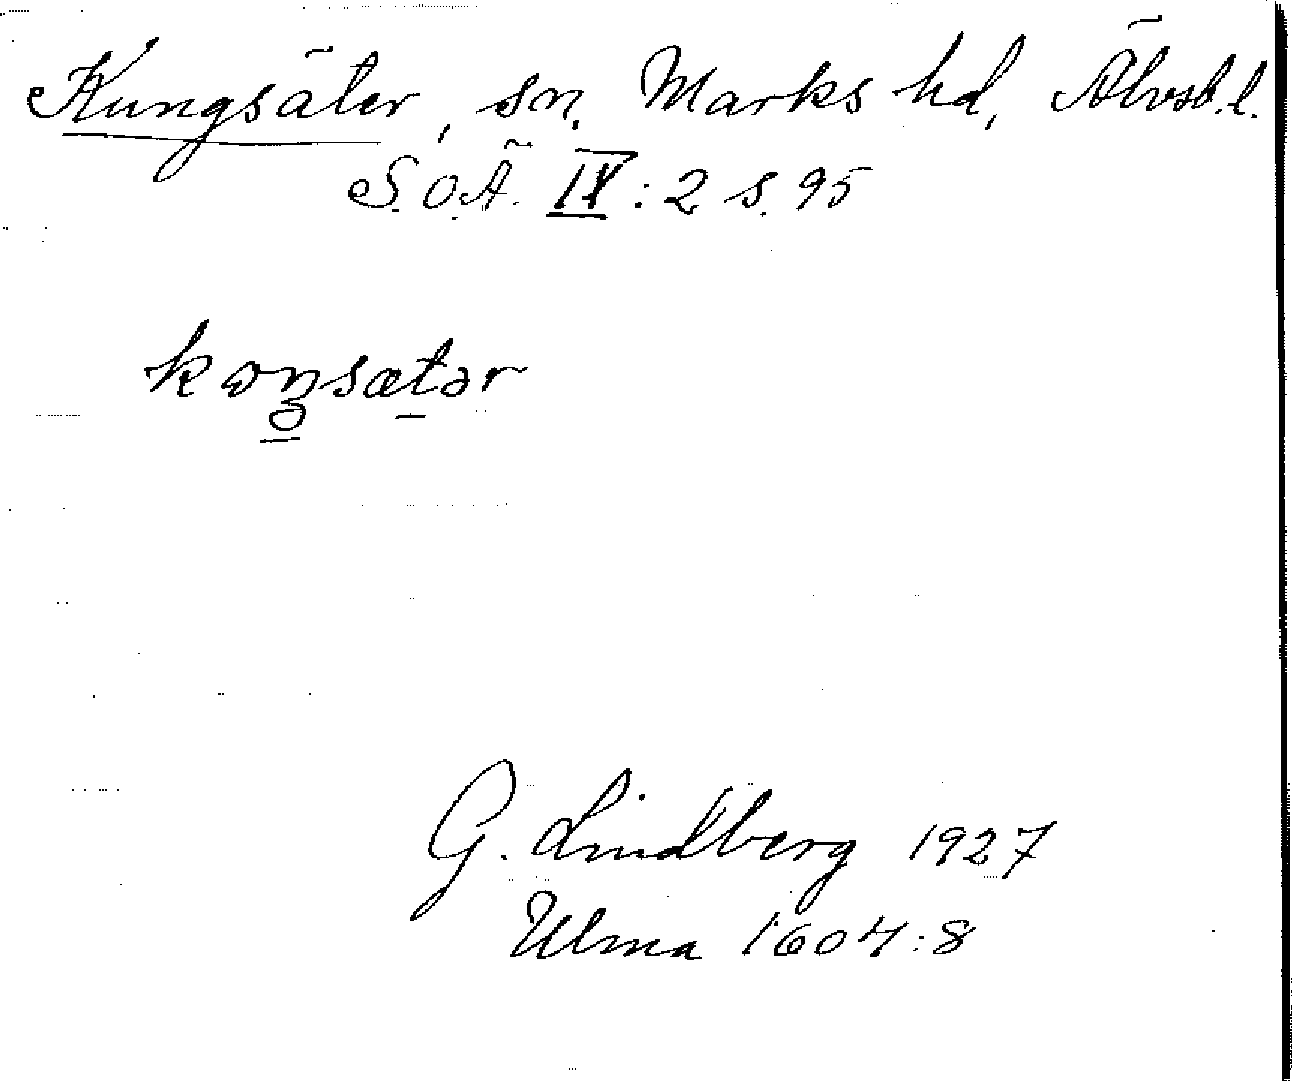 Kungsäter, sn, Marks hd, Älvsb.l.
S.O.Ä. IX:2 s. 95
kɷŋsætər
G. Lindberg 1927
Ulma 1604:8